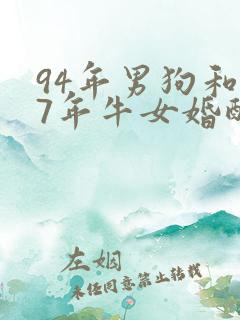 94年男狗和
7年牛女婚配
左姻
未经同意禁止转载